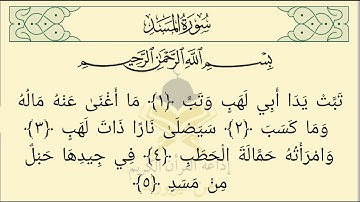 سُورَةُ المَسَدِ
بِسْمِ اللَّهِ الرَّحْمَٰنِ الرَّحِيمِ
تَبَّتْ يَدَا أَبِي لَهَبٍ وَتَبَّ ﴿١﴾ مَا أَغْنَى عَنْهُ مَالُهُ
وَمَا كَسَبَ ﴿٢﴾ سَيَصْلَى نَارًا ذَاتَ لَهَبٍ ﴿٣﴾
وَامْرَأَتُهُ حَمَّالَةَ الْحَطَبِ ﴿٤﴾ فِي جِيدِهَا حَبْلٌ
إذاعة القرآن الكريم
مِنْ مَسَدٍ ﴿٥﴾